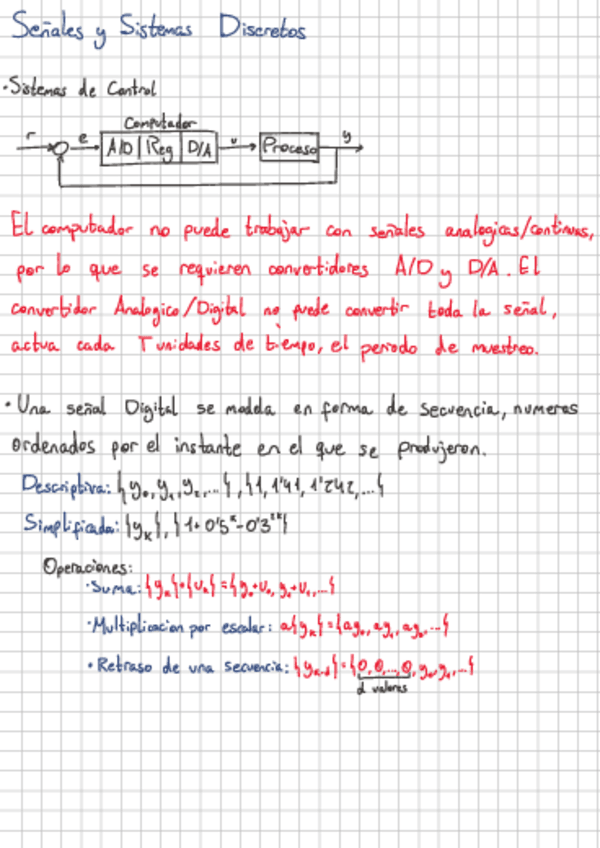 Señales y Sistemas Discretos
·Sistemas de Control
Computador
r e A/D Reg D/A u Proceso y
El computador no puede trabajar con señales analogicas/continuas,
por lo que se requieren convertidores A/D y D/A. El
convertidor Analogico/Digital no puede convertir toda la señal,
actua cada T unidades de tiempo, el periodo de muestreo.
·Una señal Digital se modela en forma de secuencia, numeros
ordenados por el instante en el que se produjeron.
Descriptiva: {y₀, y₁, y₂, ...}, {1, 1'41, 1'242, ...}
Simplificada: {yₖ}, {1+0'5ᵏ-0'3²ᵏ}
Operaciones:
·Suma: {yₖ}+{uₖ}={y₀+u₀, y₁+u₁, ...}
·Multiplicacion por escalar: a{yₖ}={ay₀, ay₁, ay₂, ...}
·Retraso de una secuencia: {yₖ₋d}={0, 0, ..., 0, y₀, y₁, ...}
d valores